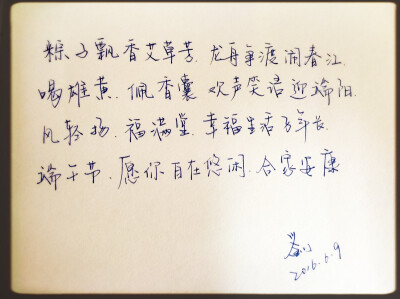 粽子飘香艾草芳.龙舟争渡闹春江.
喝雄黄.佩香囊.欢声笑语迎端阳.
风轻扬.福满堂.幸福生活万年长.
端午节.愿你自在悠闲.合家安康
2016.6.9